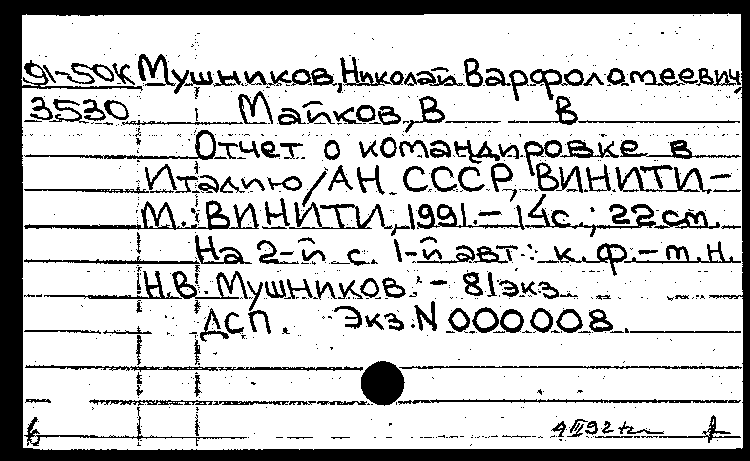 91-50К Мушников, Николай Варфоломеевич,
3530 Майков, В В
Отчет о командировке в
Италию/АН СССР, ВИНИТИ.-
М.: ВИНИТИ, 1991.- 14с.; 22см.
На 2-й с. 1-й авт.: к. ф.-м. н.
Н.В. Мушников. - 81экз.
ДСП. Экз. N 000008.